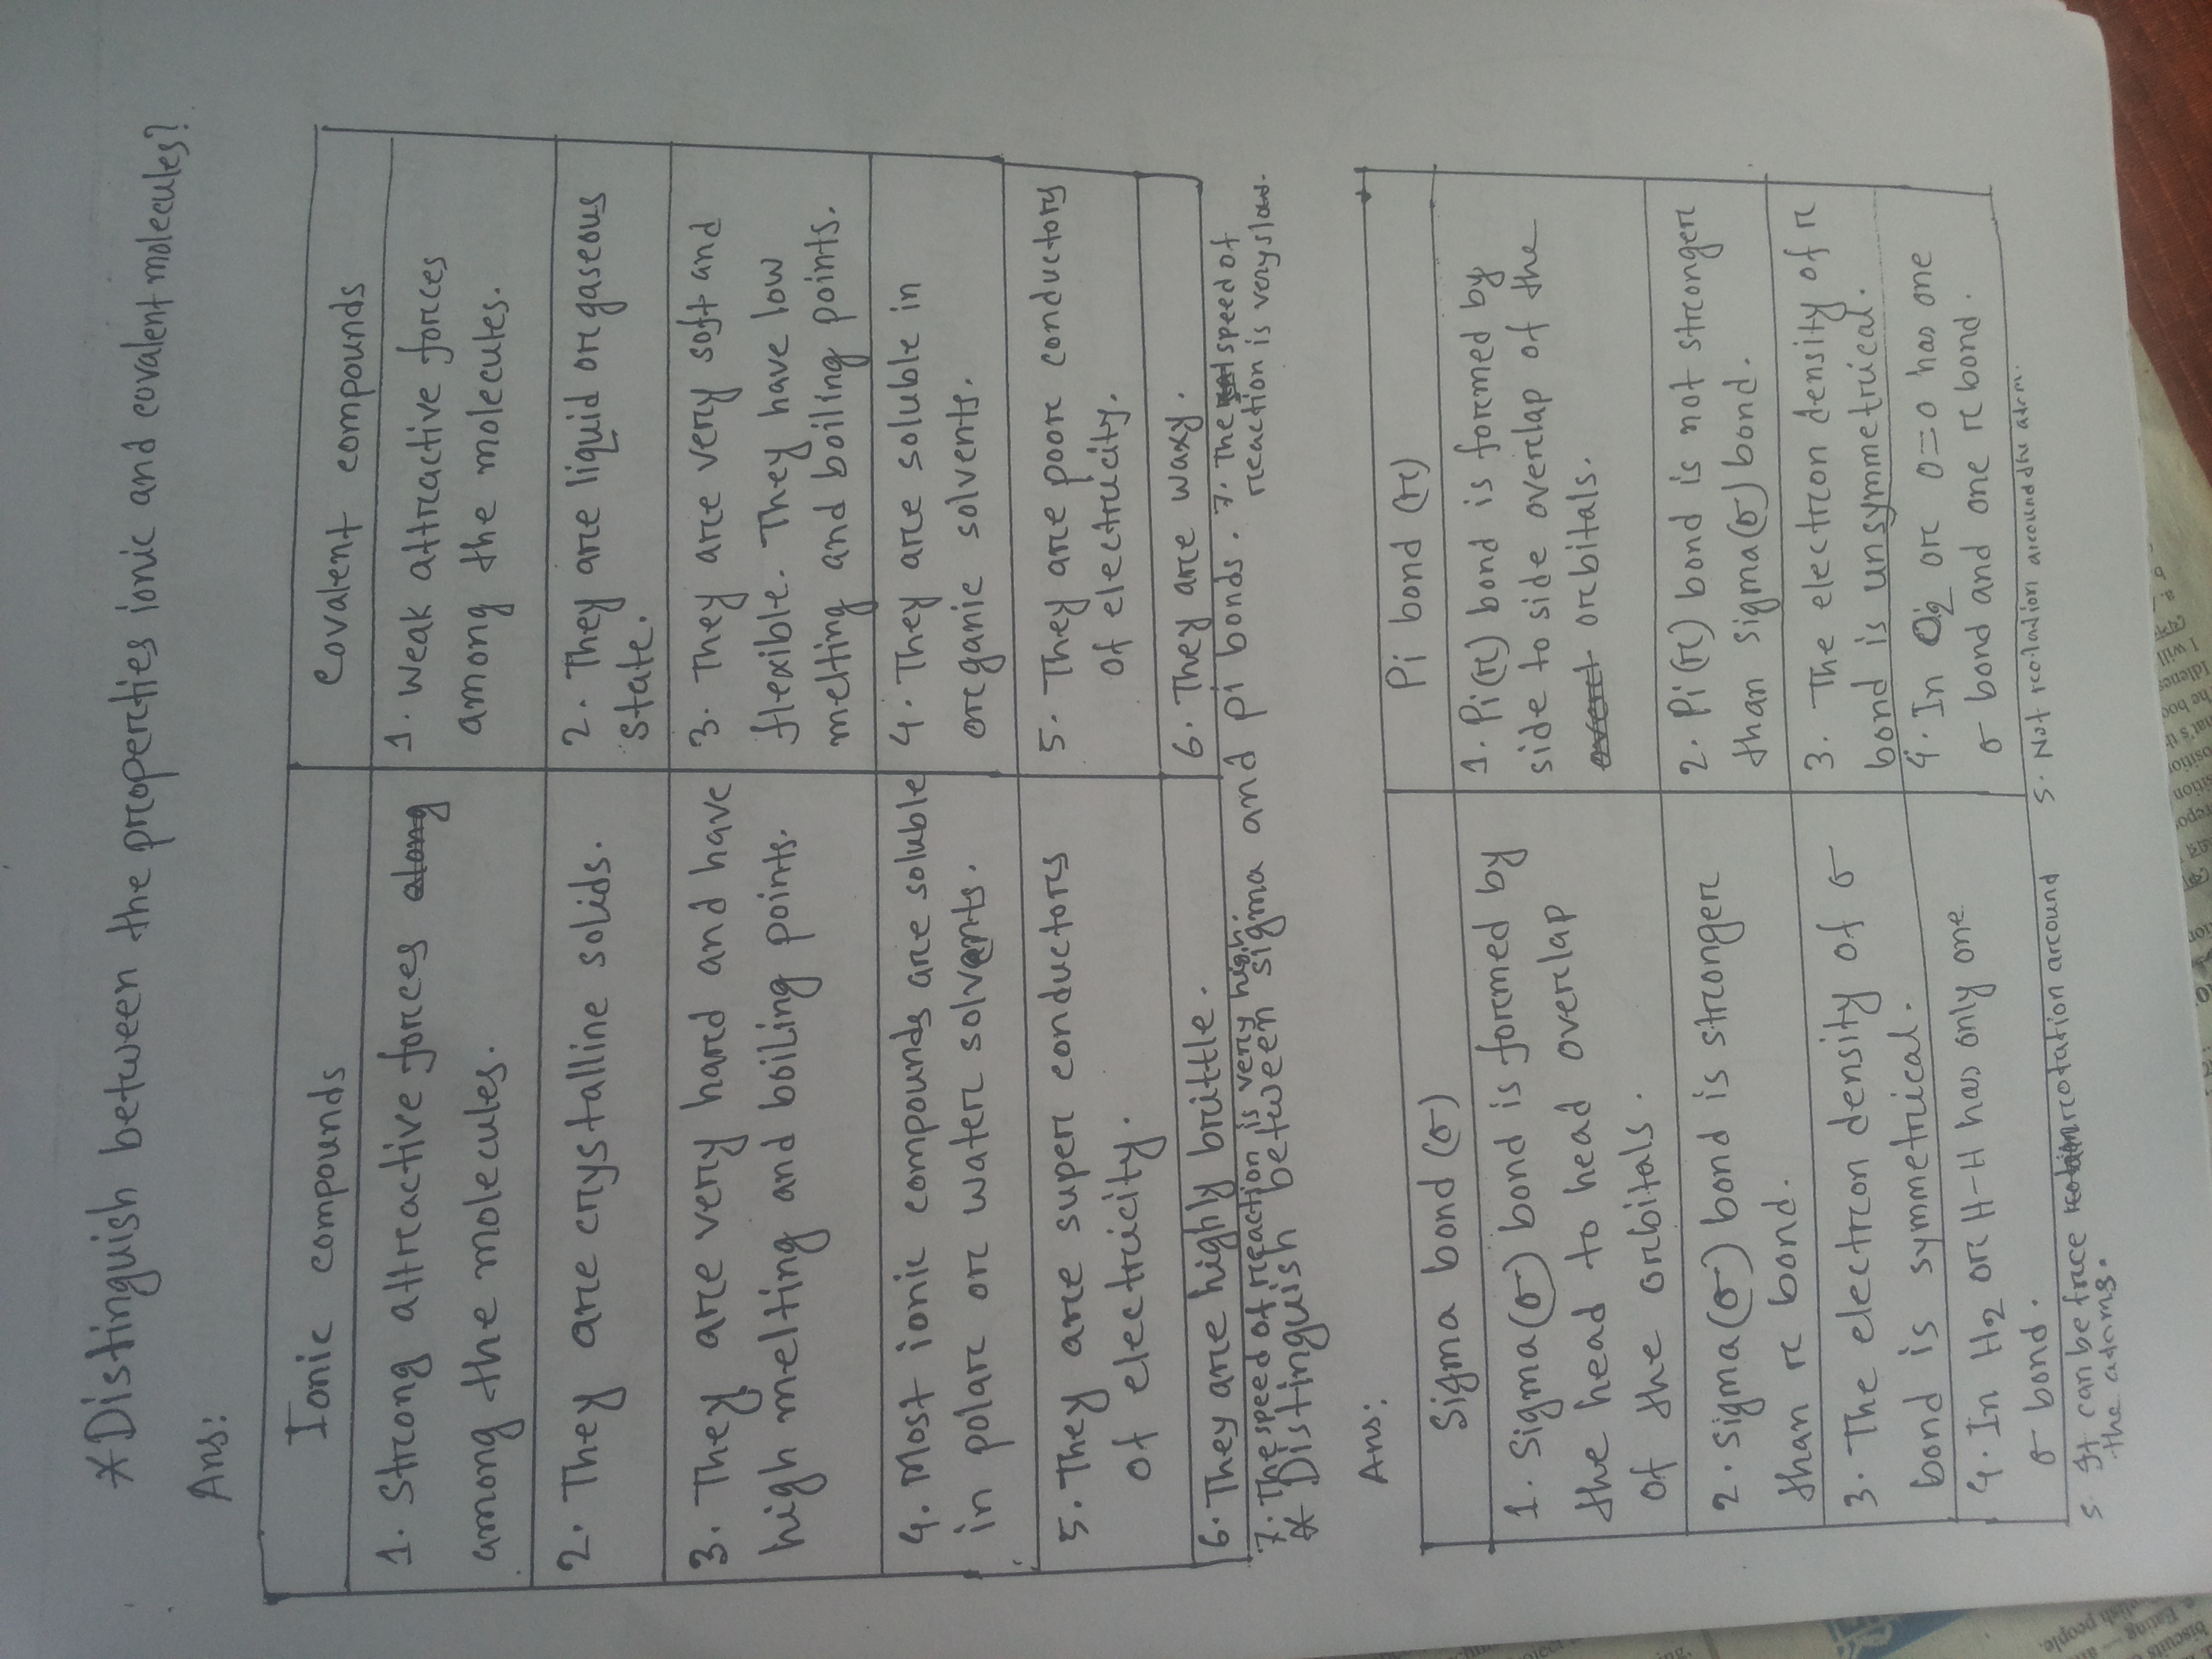 *Distinguish between the properties ionic and covalent molecules?
Ans:
Ionic compounds
Covalent compounds
1. Strong attractive forces along
among the molecules.
1. Weak attractive forces
among the molecules.
2. They are crystalline solids.
2. They are liquid or gaseous
state.
3. They are very hard and have
high melting and boiling points.
3. They are very soft and
flexible. They have low
melting and boiling points.
4. Most ionic compounds are soluble
in polar or water solvents.
4. They are soluble in
organic solvents.
5. They are super conductors
of electricity.
5. They are poor conductors
of electricity.
6. They are highly brittle.
6. They are waxy.
7. The speed of reaction is very high.
7. The speed of
reaction is very slow.
* Distinguish between sigma and pi bonds.
Ans:
Sigma bond (σ)
Pi bond (π)
1. Sigma(σ) bond is formed by
the head to head overlap
of the orbitals.
1. Pi(π) bond is formed by
side to side overlap of the
orbitals.
2. Sigma(σ) bond is stronger
than π bond.
2. Pi(π) bond is not stronger
than sigma(σ) bond.
3. The electron density of σ
bond is symmetrical.
3. The electron density of π
bond is unsymmetrical.
4. In H2 or H-H has only one
σ bond.
4. In O2 or O=O has one
σ bond and one π bond.
5. It can be free rotation around
the atoms.
5. Not rotation around the atom.